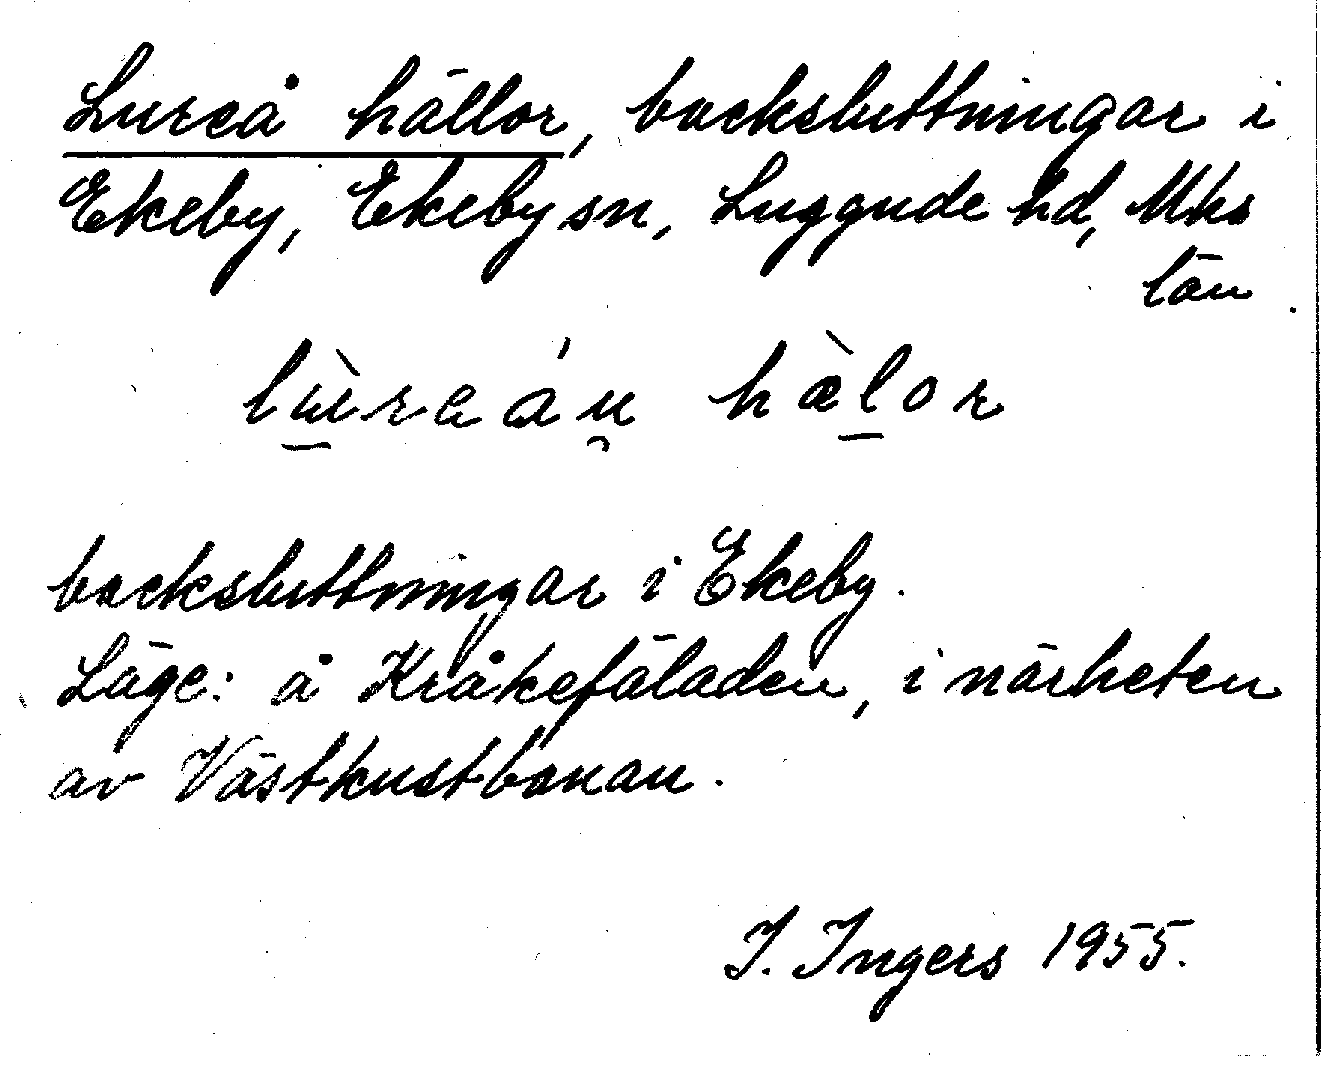 Lureå hällor, backsluttningar i
Ekeby, Ekeby sn, Luggude hd, Mhs
län.
backsluttningar i Ekeby.
Läge: å Kråkefäladen, i närheten
av Västkustbanan.
I. Ingers 1955.